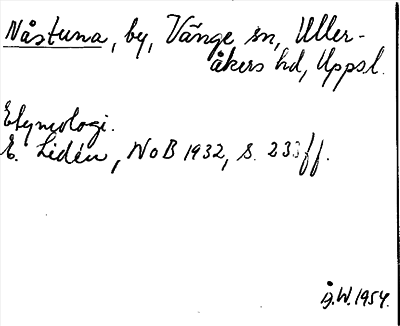 Nåstuna, by, Vänge sn, Uller-
åkers hd, Uppsl.
Etymologi.
E. Lidén, NoB 1932, s. 233ff.
Å.W. 1954.